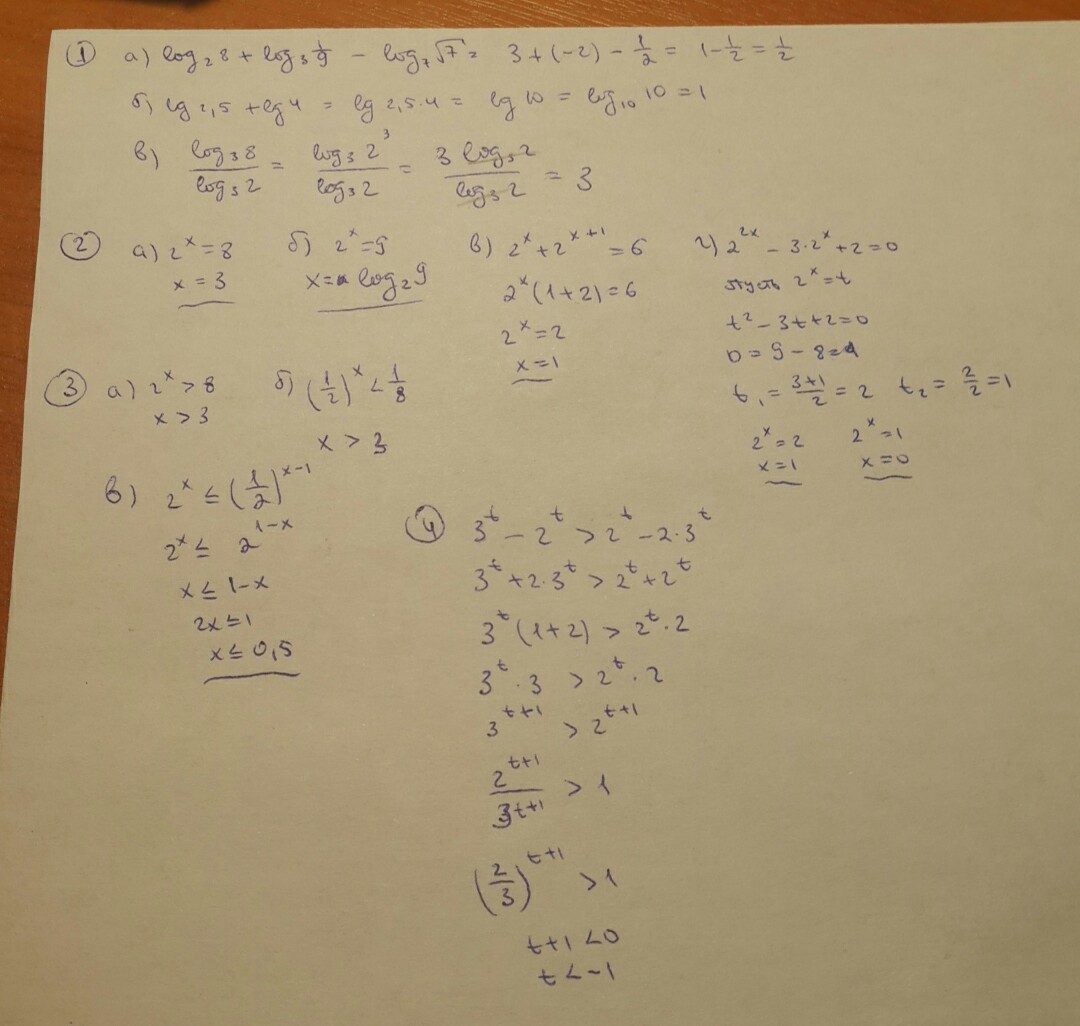 ① а) log₂8 + log₃ 1/9 - log₇√7 = 3+(-2) - 1/2 = 1-1/2 = 1/2
б) lg 2,5 + lg 4 = lg 2,5·4 = lg 10 = log₁₀ 10 = 1
в) log₃8/log₃2 = log₃2³/log₃2 = 3 log₃2/log₃2 = 3
② а) 2^x = 8
x = 3
б) 2^x = 9
x = log₂9
в) 2^x + 2^(x+1) = 6
2^x (1+2) = 6
2^x = 2
x = 1
г) 2^(2x) - 3·2^x + 2 = 0
пусть 2^x = t
t² - 3t + 2 = 0
D = 9 - 8 = 1
t₁ = (3+1)/2 = 2 t₂ = 2/2 = 1
2^x = 2 2^x = 1
x = 1 x = 0
③ а) 2^x > 8
x > 3
б) (1/2)^x < 1/8
x > 3
в) 2^x ≤ (1/2)^(x-1)
2^x ≤ 2^(1-x)
x ≤ 1-x
2x ≤ 1
x ≤ 0,5
④ 3^t - 2^t > 2^t - 2·3^t
3^t + 2·3^t > 2^t + 2^t
3^t (1+2) > 2^t · 2
3^t · 3 > 2^t · 2
3^(t+1) > 2^(t+1)
2^(t+1)/3^(t+1) > 1
(2/3)^(t+1) > 1
t+1 < 0
t < -1